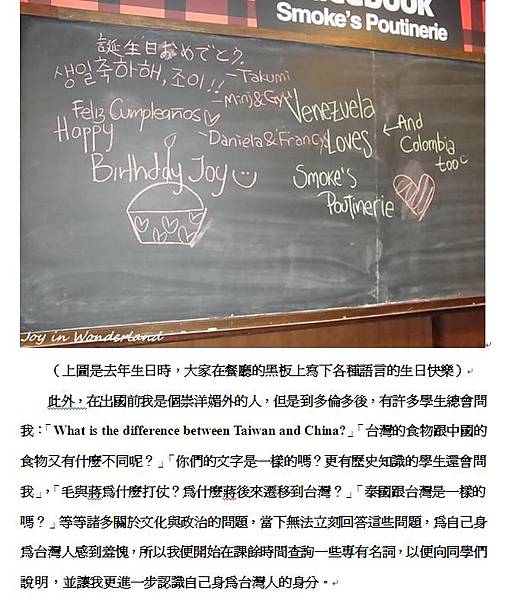 Smoke's Poutinerie
誕生日おめでとう。 -Takumi
생일축하해, 조이!!
Feliz Cumpleaños
-Daniela&Francys
Happy
Birthday Joy
Venezuela
Loves
Smoke's
Poutinerie
And
Colombia
too
Joy in Wonderland
（上圖是去年生日時，大家在餐廳的黑板上寫下各種語言的生日快樂）
此外，在出國前我是個崇洋媚外的人，但是到多倫多後，有許多學生總會問
我：「What is the difference between Taiwan and China?」「台灣的食物跟中國的
食物又有什麼不同呢？」「你們的文字是一樣的嗎？更有歷史知識的學生還會問
我」，「毛與蔣為什麼打仗？為什麼蔣後來遷移到台灣？」「泰國跟台灣是一樣的
嗎？」等等諸多關於文化與政治的問題，當下無法立刻回答這些問題，為自己身
為台灣人感到羞愧，所以我便開始在課餘時間查詢一些專有名詞，以便向同學們
說明，並讓我更進一步認識自己身為台灣人的身分。